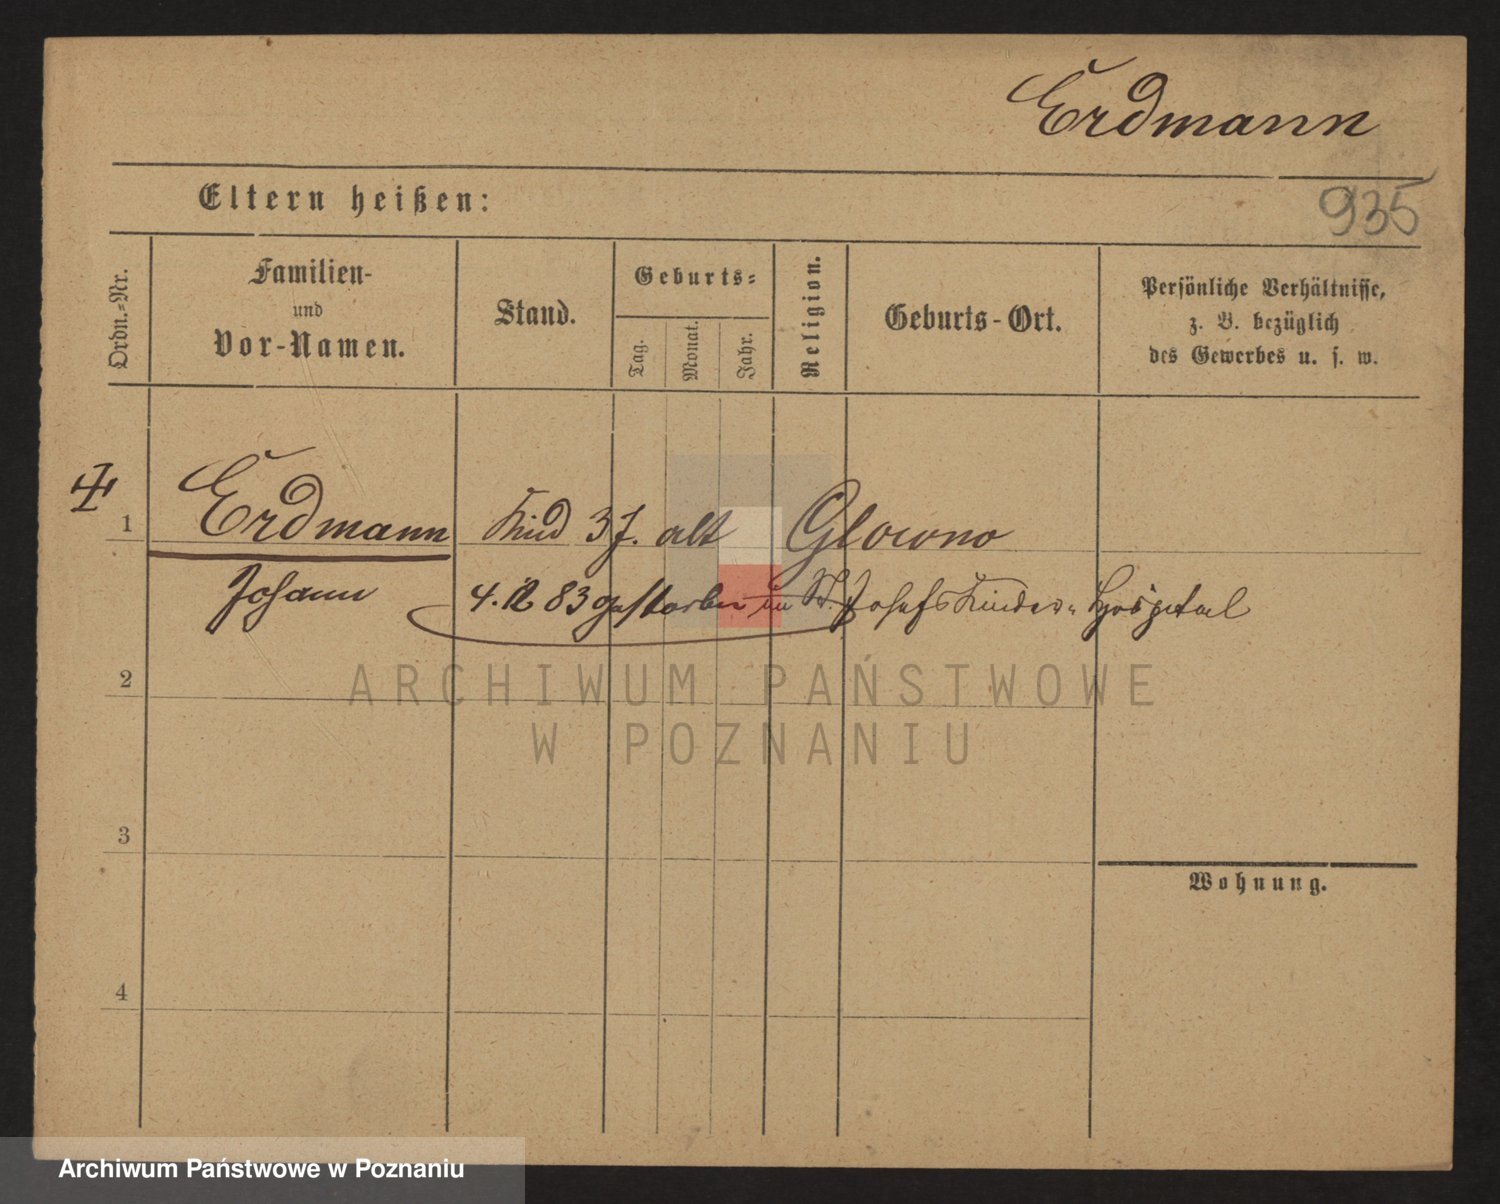 Erdmann
Eltern heißen:
935
Ordn.-Nr.
Familien-
und
Vor-Namen.
Stand.
Geburts-
Tag.
Monat.
Jahr.
Religion.
Geburts-Ort.
Persönliche Verhältnisse,
z. B. bezüglich
des Gewerbes u. s. w.
1
Erdmann Kind 3 J. alt Glowno
Johann 4. 12 83 gestorben im St. Josefs Kinder- Hospital
ARCHIWUM PAŃSTWOWE
W POZNANIU
2
3
Wohnung.
4
Archiwum Państwowe w Poznaniu